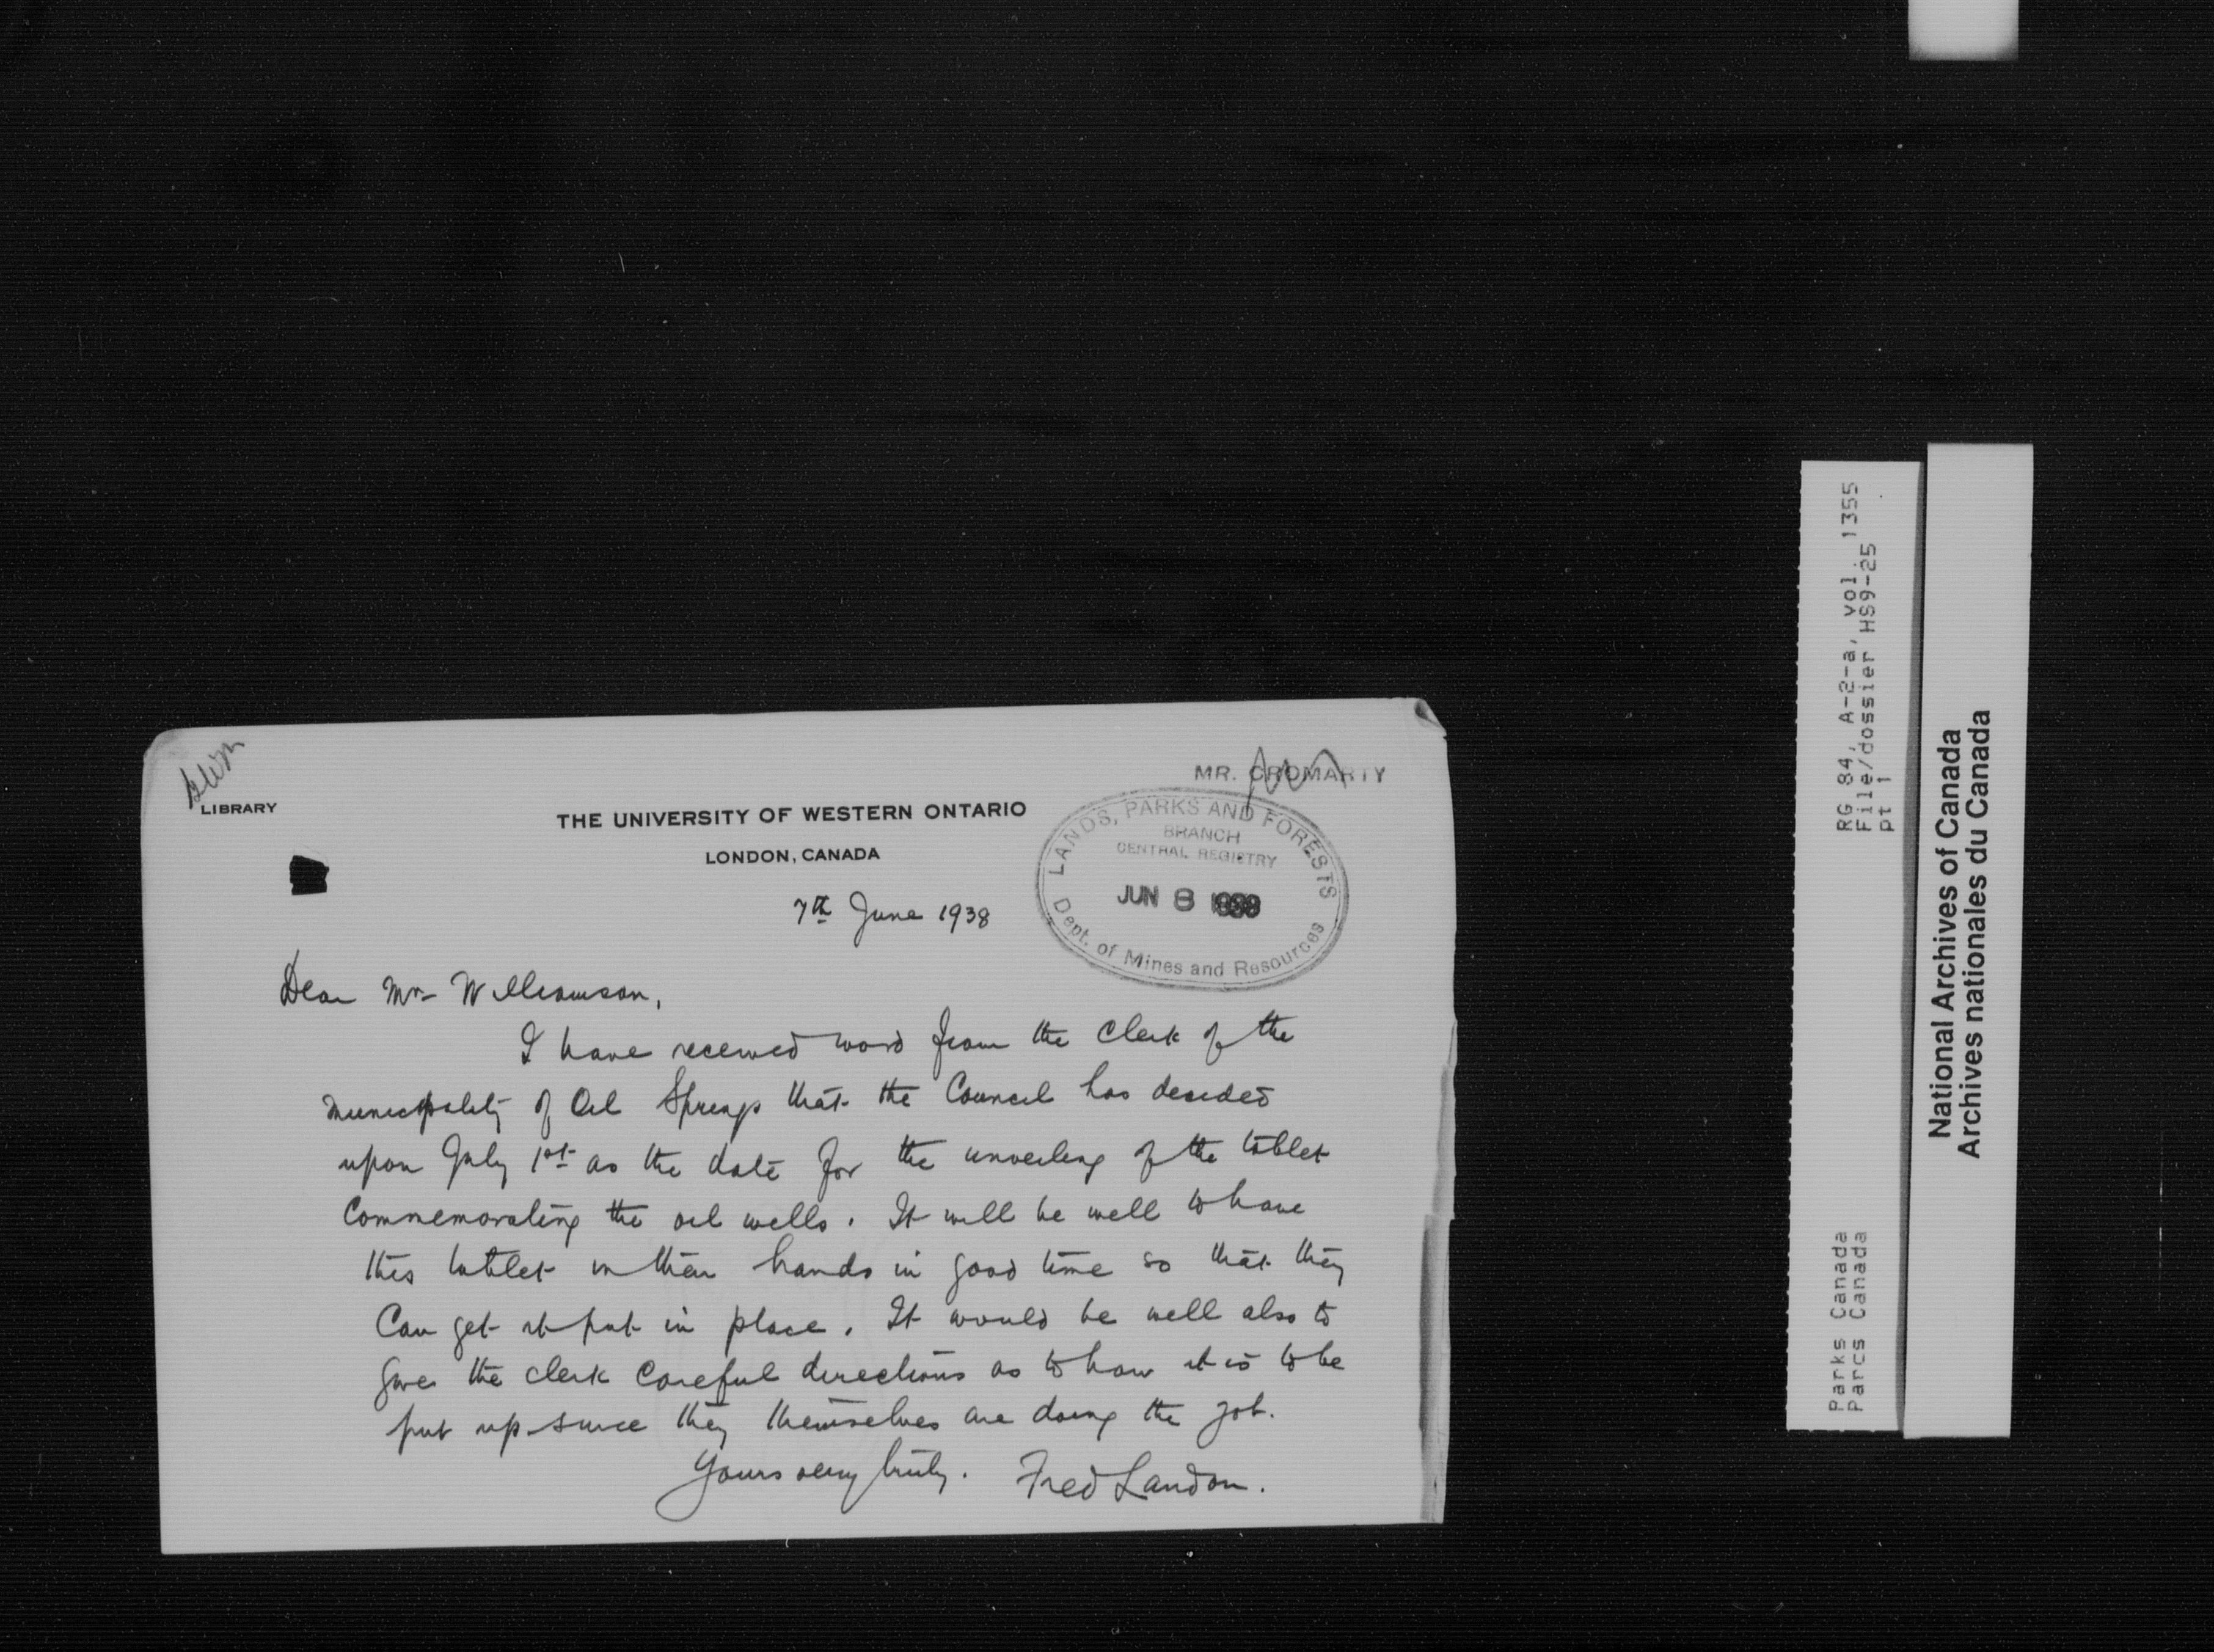 MR. CROMARTY
LIBRARY
THE UNIVERSITY OF WESTERN ONTARIO
LONDON, CANADA
LANDS, PARKS AND FORESTS
BRANCH
CENTRAL REGISTRY
JUN 8 1938
Dept. of Mines and Resources
7th June 1938
Dear Mr. Williamson,
I have received word from the clerk of the
municipality of Oil Springs that the Council has decided
upon July 1st as the date for the unveiling of the tablet
commemorating the oil wells. It will be well to have
this tablet in their hands in good time so that they
can get it put in place. It would be well also to
give the clerk careful directions as to how it is to be
put up since they themselves are doing the job.
Yours very truly. Fred Landon.
RG 84, A-2-a, vol. 1355
File/dossier HS9-25
pt 1
Parks Canada
Parcs Canada
National Archives of Canada
Archives nationales du Canada